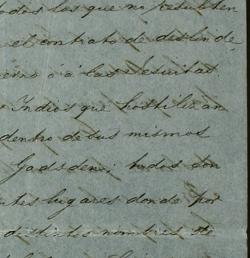 todos los que no resulten
el contrato de deslinde
ó á las Jesuitas.
Indios que hostilizan
dentro de sus mismos
Gadsden; todos con
lugares donde por
distintos nombres de